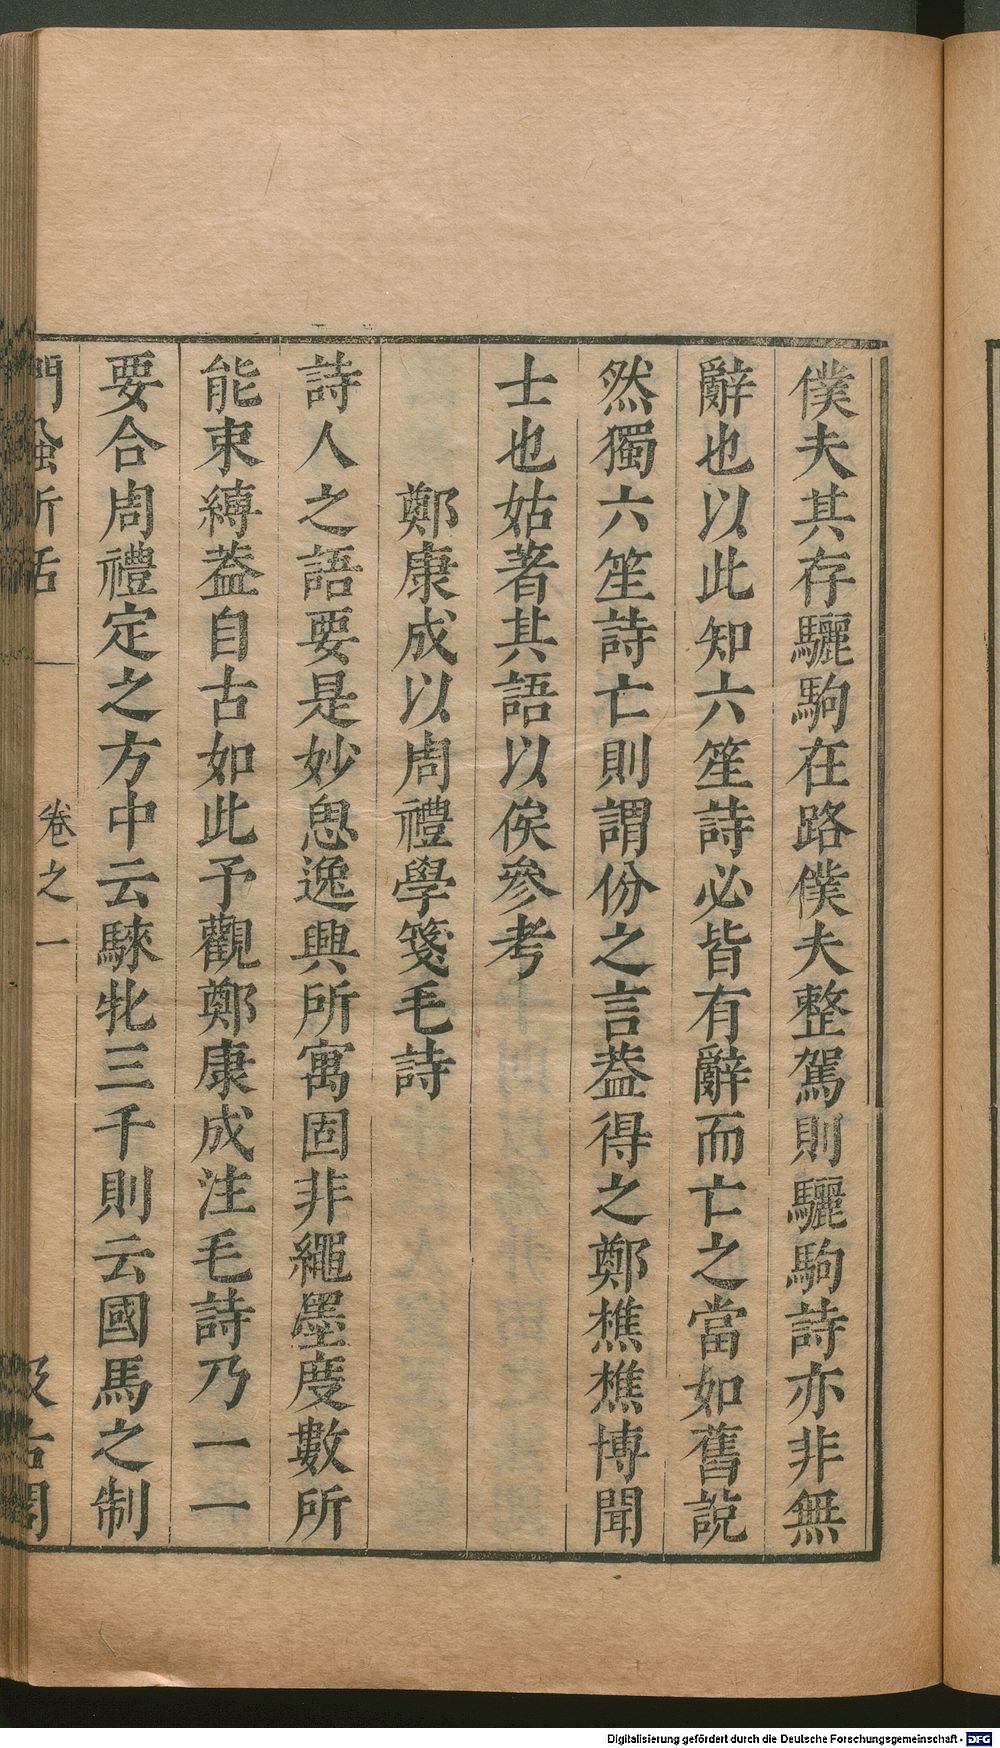 僕夫其存驪駒在路僕夫整駕則驪駒詩亦非無
辭也以此知六笙詩必皆有辭而亡之當如舊說
然獨六笙詩亡則謂份之言葢得之鄭樵樵博聞
士也姑著其語以俟參考
鄭康成以周禮學箋毛詩
詩人之語要是妙思逸興所寓固非繩墨度數所
能束縛葢自古如此予觀鄭康成注毛詩乃一一
要合周禮定之方中云騋牝三千則云國馬之制
門蝨新話
卷之一
汲古閣
Digitalisierung gefördert durch die Deutsche Forschungsgemeinschaft - DFG